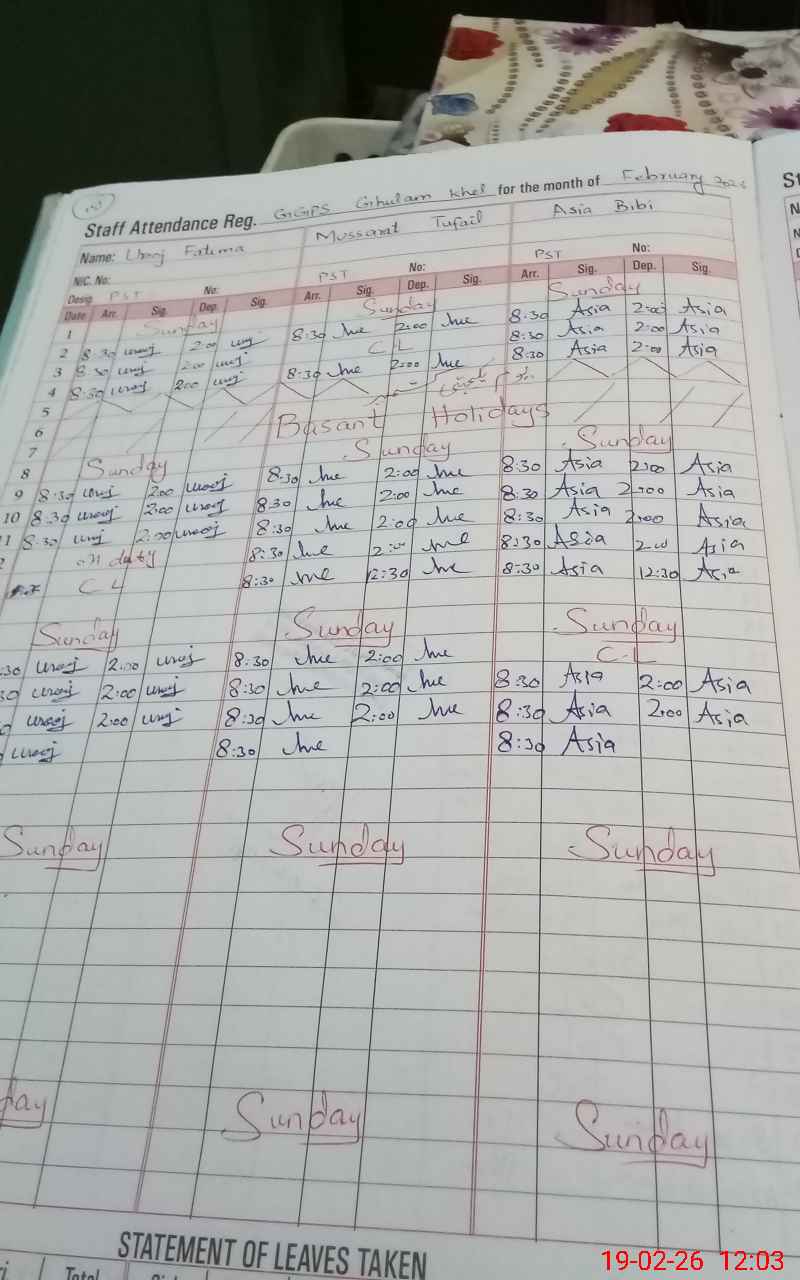 Staff Attendance Reg. GGPS Ghulam Khel for the month of February 2026
Name: Urooj Fatima Mussarat Tufail Asia Bibi
NIC. No:
Desig. PST No: PST No: PST No:
Date Arr. Sig. Dep. Sig. Arr. Sig. Dep. Sig. Arr. Sig. Dep. Sig.
1 Sunday Sunday Sunday
2 8:30 urooj 2:00 urooj 8:30 2:00 8:30 Asia 2:00 Asia
3 8:30 urooj 2:00 urooj C L 8:30 Asia 2:00 Asia
4 8:30 urooj 2:00 urooj 8:30 2:00 8:30 Asia 2:00 Asia
5
6 Basant Holidays
7
8 Sunday Sunday Sunday
9 8:30 urooj 2:00 urooj 8:30 2:00 8:30 Asia 2:00 Asia
10 8:30 urooj 2:00 urooj 8:30 2:00 8:30 Asia 2:00 Asia
11 8:30 urooj 2:00 urooj 8:30 2:00 8:30 Asia 2:00 Asia
on duty 8:30 2:00 8:30 Asia 2:00 Asia
C L 8:30 12:30 8:30 Asia 12:30 Asia
Sunday Sunday Sunday
:30 urooj 2:00 urooj 8:30 2:00 C.L
30 urooj 2:00 urooj 8:30 2:00 8:30 Asia 2:00 Asia
urooj 2:00 urooj 8:30 2:00 8:30 Asia 2:00 Asia
urooj 8:30 8:30 Asia
Sunday Sunday Sunday
day Sunday Sunday
STATEMENT OF LEAVES TAKEN
Total
19-02-26 12:03